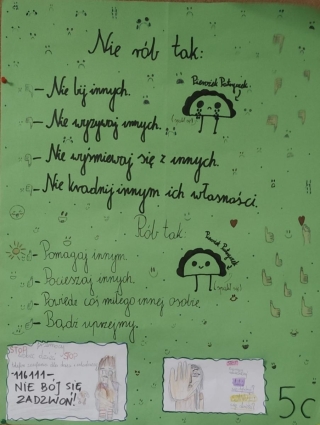 Nie rób tak:
- Nie bij innych.
- Nie wyzywaj innych.
- Nie wyśmiewaj się z innych.
- Nie kradnij innym ich własności.
Rób tak:
- Pomagaj innym.
- Pocieszaj innych.
- Powiedz coś miłego innej osobie.
- Bądź uprzejmy.
116111-
NIE BÓJ SIĘ
ZADZWOŃ!
5c